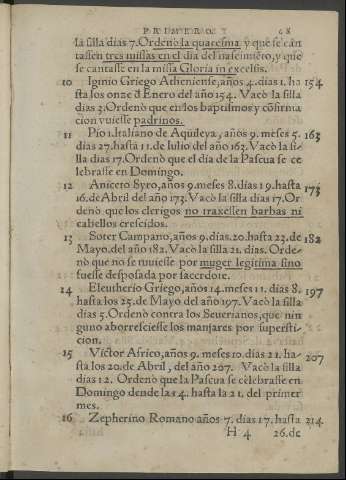 PRIMERO.
68
la silla dias 7. Ordenò la quaresma, y que se cãn
tassen tres missas en el dia del nascimiẽto, y que
se cantasse en la missa Gloria in excelsis.
10 Iginio Griego Atheniense, años 4. dias 1. ha 154
sta los onze đ Enero del año 154. Vacò la silla
dias 3. Ordenò que en los baptismos y cõfirma
cion vuiesse padrinos.
11 Pio I. Italiano de Aquileya, años 9. meses 5. 163
dias 27. hasta 11. de Iulio del año 163. Vacò la si-
lla dias 17. Ordenò que el dia de la Pascua se ce
lebrasse en Domingo.
12 Aniceto Syro, años 9. meses 8. dias 19. hasta 173
16. de Abril del año 173. Vacò la silla dias 17. Or
denò que los clerigos no traxessen barbas ni
cabellos crescidos.
13 Soter Campano, años 9. dias. 20. hasta 23. de 182
Mayo. del año 182. Vacò la silla 21. dias. Orde-
nò que no se tuuiesse por muger legitima sino
fuesse desposada por sacerdote.
14 Eleutherio Griego, años 14. meses 11. dias 8. 197
hasta los 25. de Mayo del año 197. Vacò la silla
dias 5. Ordenò contra los Seuerianos, que nin
guno aborresciesse los manjares por supersti-
cion.
15 Victor Africo, años 9. meses 10. dias 21. ha- 207
sta los 20. de Abril, del año 207. Vacò la silla
dias 12. Ordenò que la Pascua se celebrasse en
Domingo dende las 14. hasta la 21. del primer
mes.
16 Zepherino Romano años 7. dias 17. hasta 214
H 4 26. de